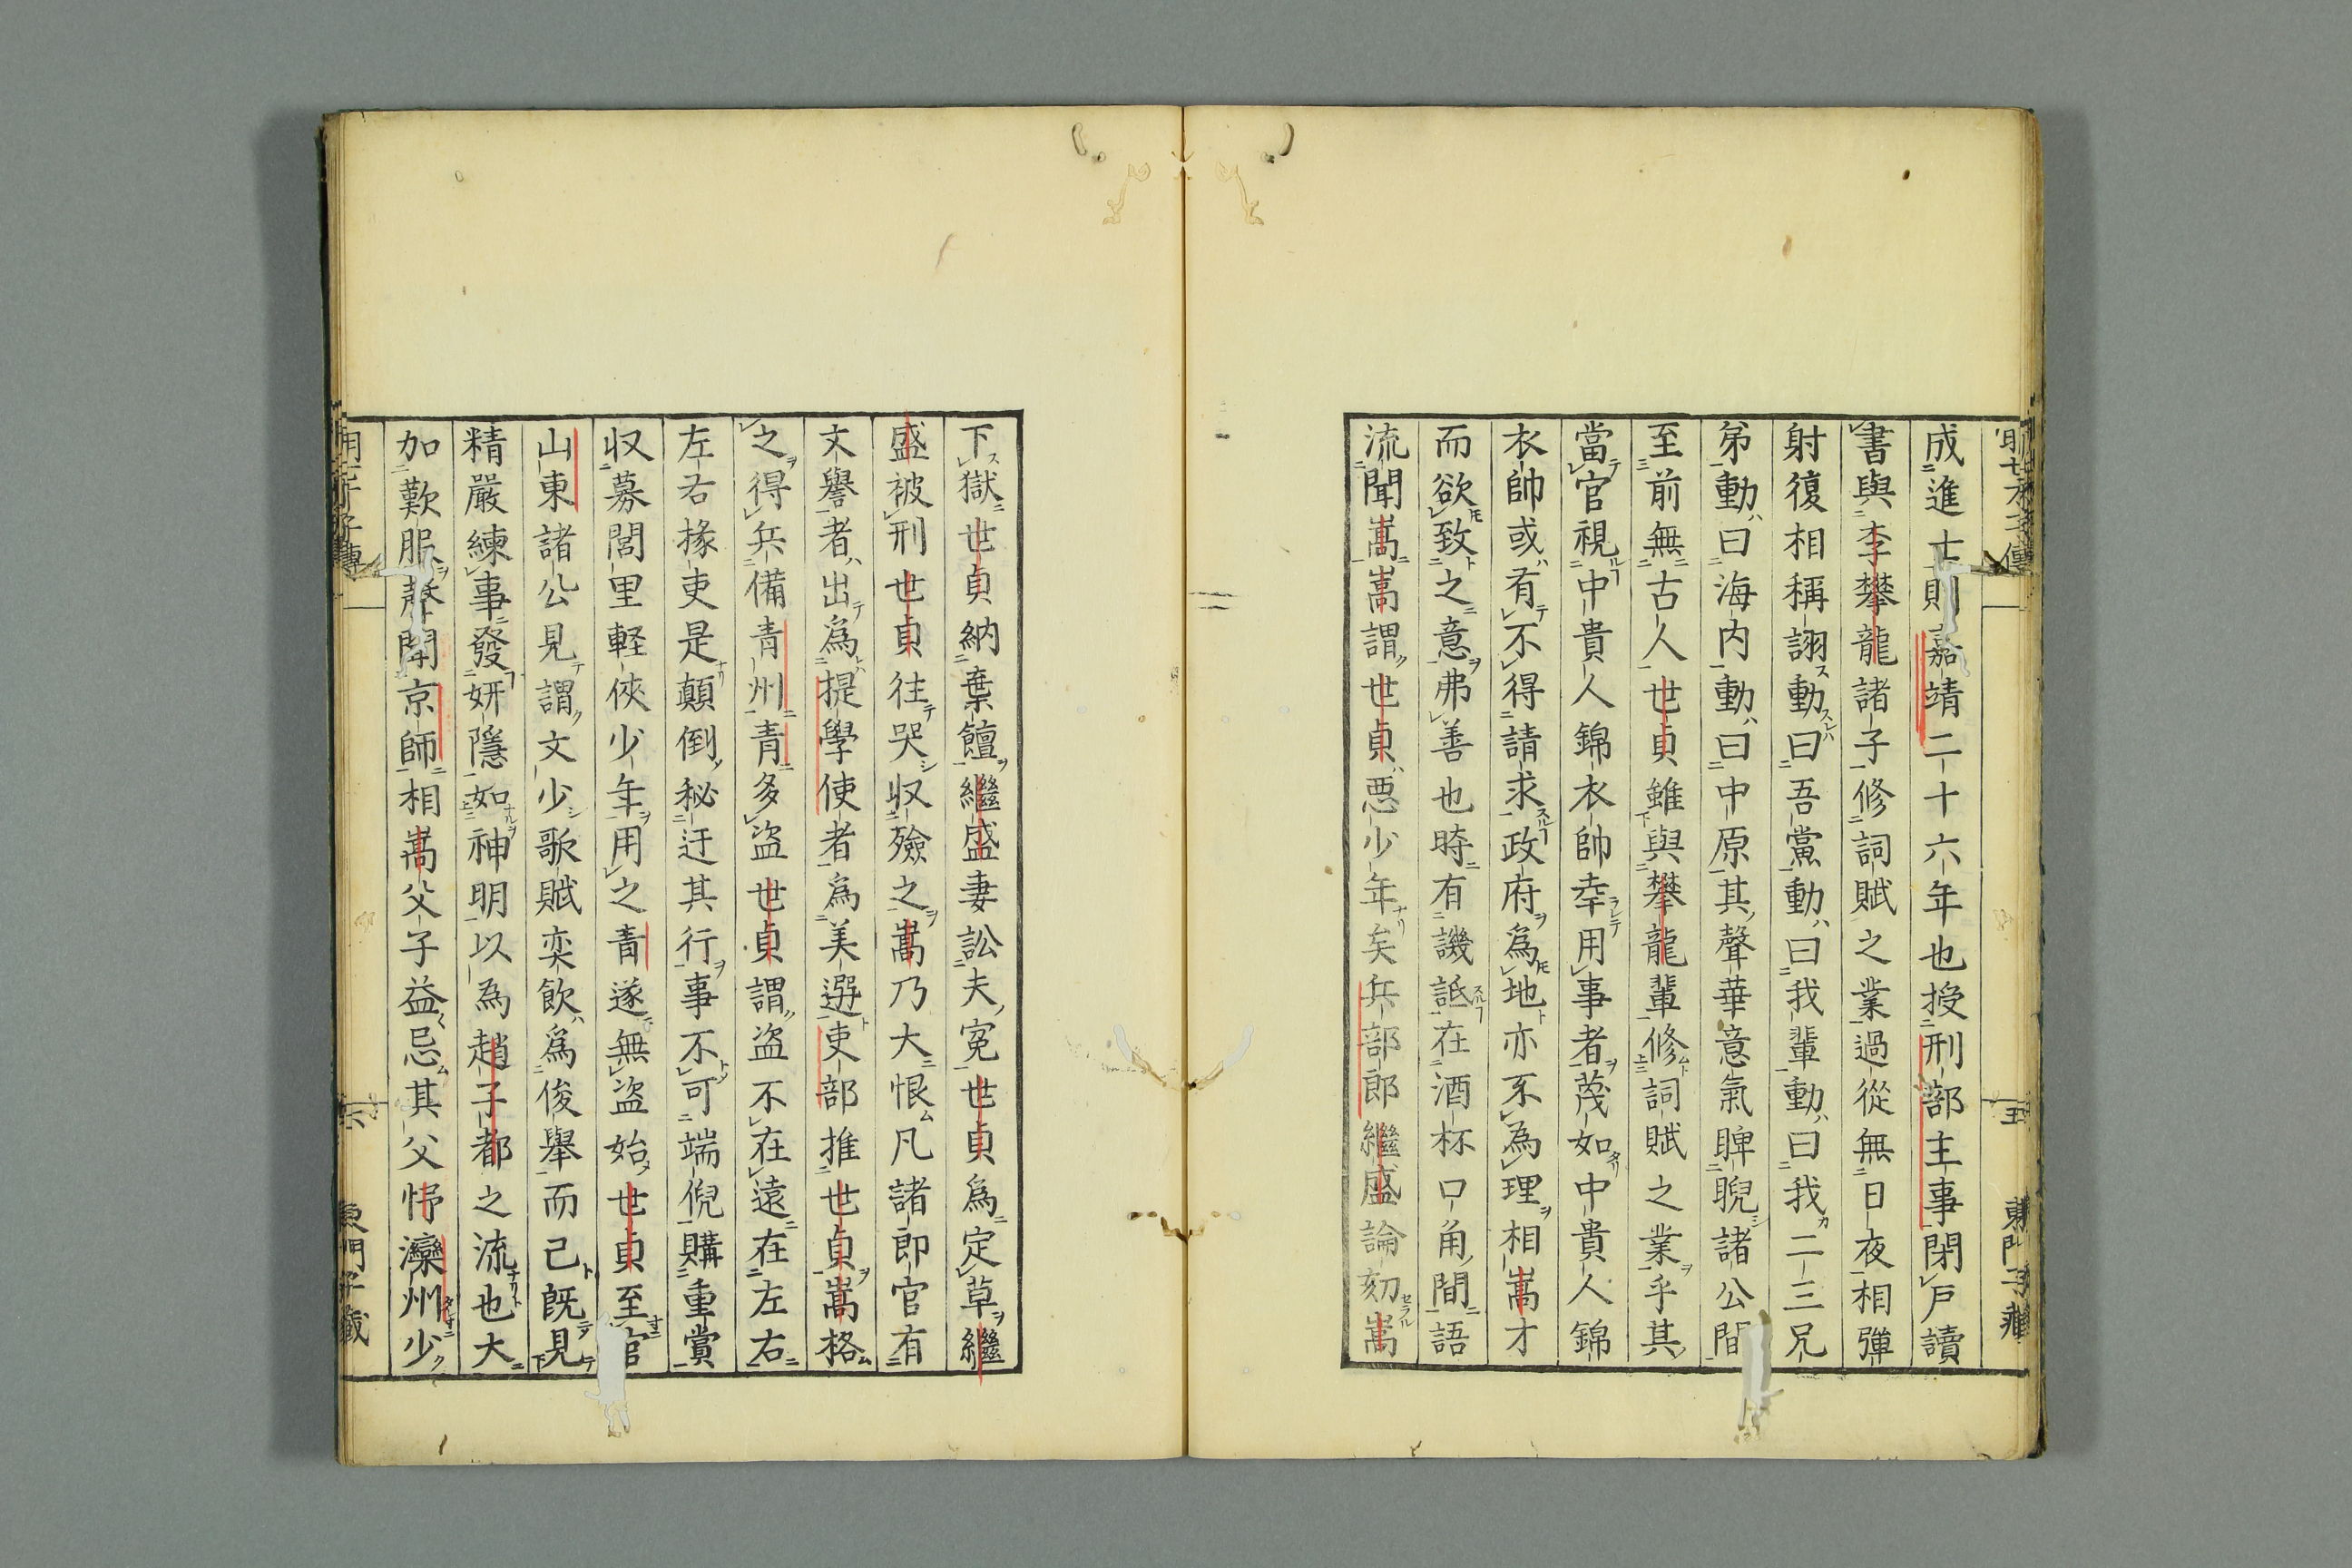 成進士則嘉靖二十六年也授刑部主事閉戶讀
書與李攀龍諸子修詞賦之業過從無日夜相彈
射復相稱詡動曰吾黨動曰我輩動曰我二三兄
弟動曰海内動曰中原其聲華意氣睥睨諸公間
至前無古人世貞雖與攀龍輩修詞賦之業乎其
當官視中貴人錦衣帥幸用事者蔑如中貴人錦
衣帥或有不得請求政府為地亦不為理相嵩才
而欲致之意弗善也時有譏詆在酒杯口角間語
流聞嵩嵩謂世貞惡少年矣兵部郎繼盛論劾嵩
下獄世貞納橐饘繼盛妻訟夫冤世貞為定草繼
盛被刑世貞往哭収殮之嵩乃大恨凡諸郎官有
文譽者出為提學使者為美選吏部推世貞嵩格
之得兵備青州青多盜世貞謂盜不在遠在左右
左右掾吏是顛倒秘迂其行事不可端倪購重賞
収募閭里軽俠少年用之青遂無盜始世貞至官
山東諸公見謂文少歌賦奕飲為俊舉而已既見
精嚴練事發姸隱如神明以為趙子都之流也大
加歎服聲聞京師相嵩父子益忌其父忬灤州少